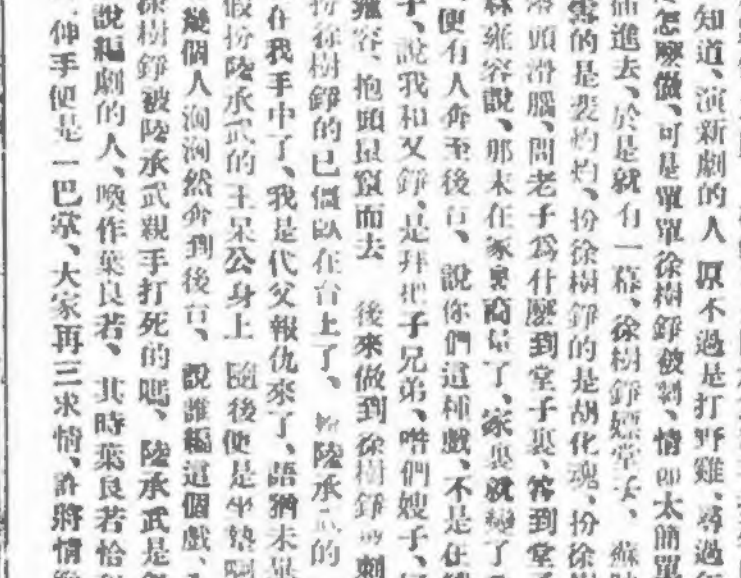 知道、演新劇的人原不過是打野雞、尋過
怎麼做、可是單單徐樹錚被刺、情節太簡單
進去、於是就有一幕、徐樹錚嫖堂子、蘇
的是裴灼灼、扮徐樹錚的是胡化魂、扮徐樹
頭滑腦、問老子爲什麼到堂子裏、答到堂子
雍容說、那末在家裏商量了、家裏就變了
便有人奔至後台、說你們這種戲、不是在
說我和又錚、是拜把子兄弟、咱們嫂子、
容、抱頭鼠竄而去 後來做到徐樹錚被刺
扮徐樹錚的已僵臥在台上了、扮陸承武的
在我手中了、我是代父報仇來了、語猶未畢
假扮陸承武的王呆公身上 隨後便是坐墊
幾個人洶洶然奔到後台、說誰編這個戲、
徐樹錚被陸承武親手打死的嗎、陸承武是
說編劇的人、喚作葉良若、其時葉良若恰
伸手便是一巴掌、大家再三求情、許將情